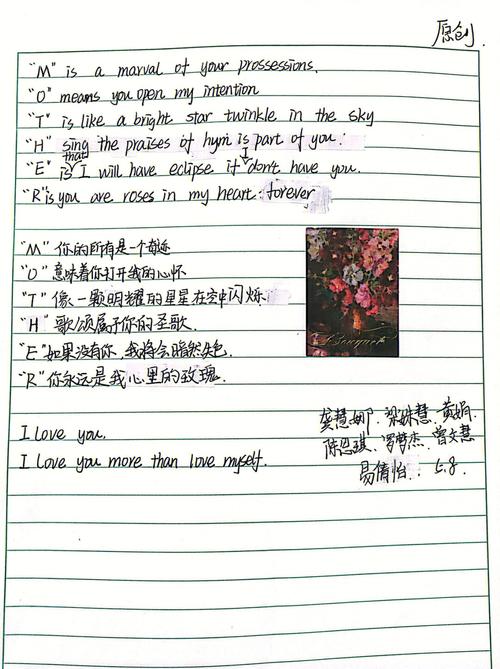 原创.
"M" is a marval of your prossessions.
"O" means you open my intention
"T" is like a bright star twinkle in the sky
"H" sing the praises of hym is part of you.
"E" is that I will have eclipse if I don't have you.
"R" is you are roses in my heart forever
"M" 你的所有是一个奇迹
"O" 意味着你打开我的心怀
"T" 像一颗明耀的星星在空中闪烁.
"H" 歌颂属于你的圣歌.
"E" 如果没有你,我将会暗然失色.
"R" 你永远是我心里的玫瑰.
Bouquet
I love you.
I love you more than love myself.
龚慧娜. 梁姝慧. 黄娟.
陈思琪. 罗梦杰. 曾文慧
易倩怡. 5.8.